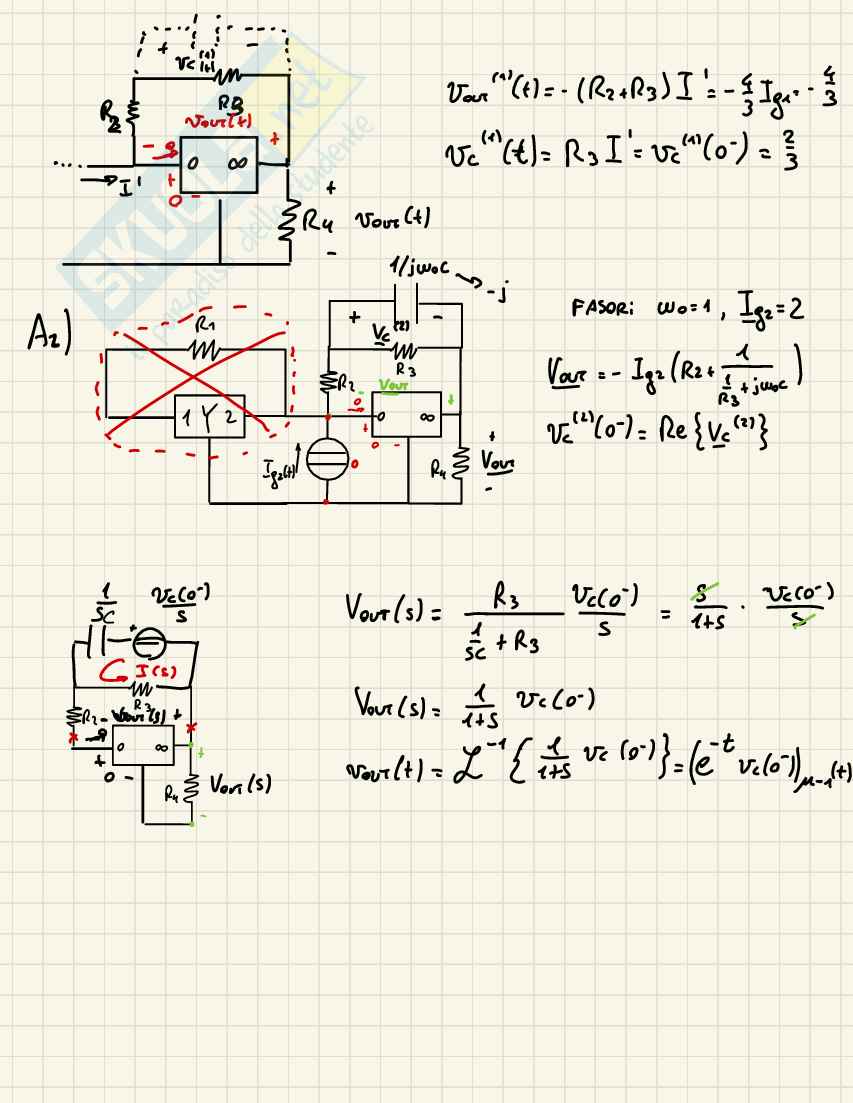 + vc⁽¹⁾(t) −
R2
R3
vout(t)
− 0 +
0 ∞
.... I'
+
0 −
R4 vout(t)
+
−
vout⁽¹⁾(t) = - (R2+R3) I' = - 4/3 Ig1 = - 4/3
vc⁽¹⁾(t) = R3 I' = vc⁽¹⁾(0-) = 2/3
SKUOLA.net
paradiso dello studente
A2)
R1
1 Y 2
1/jω0C → -j
+ Vc⁽²⁾ −
R3
R2
Vout
− 0 +
0 ∞
+
0 −
Ig2(t)
0
R4
+
Vout
−
FASORI ω0=1, Ig2=2
Vout = - Ig2 (R2 + 1/(1/R3 + jω0C))
vc⁽²⁾(0-) = Re{Vc⁽²⁾}
1/SC vc(0-)/s
+
I(s)
R3
R2 − vout(s) +
0
0 ∞
+
0 −
R4 Vout(s)
+
−
Vout(s) = R3/(1/SC + R3) vc(0-)/s = s/(1+s) · vc(0-)/s
Vout(s) = 1/(1+s) vc(0-)
vout(t) = L⁻¹ { 1/(1+s) vc(0-) } = (e^-t vc(0-)) μ-1(t)